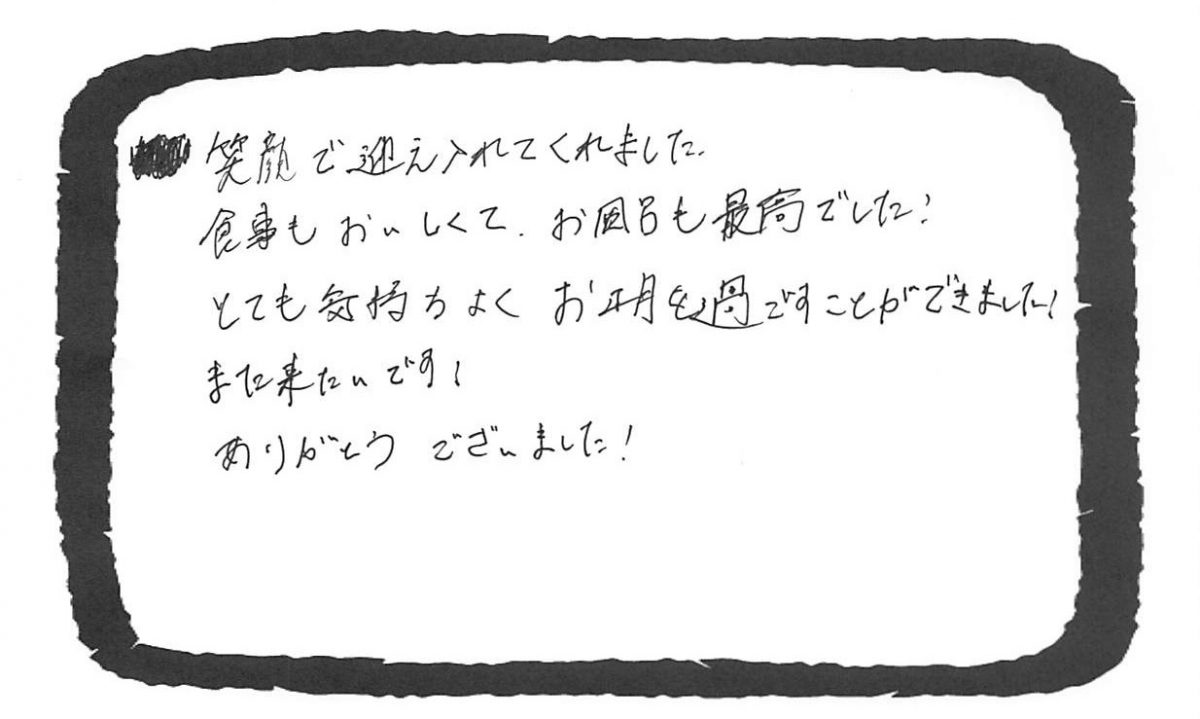 笑顔で迎え入れてくれました。
食事もおいしくて、お風呂も最高でした!
とても気持ちよくお正月を過ごすことができました!
また来たいです!
ありがとうございました!